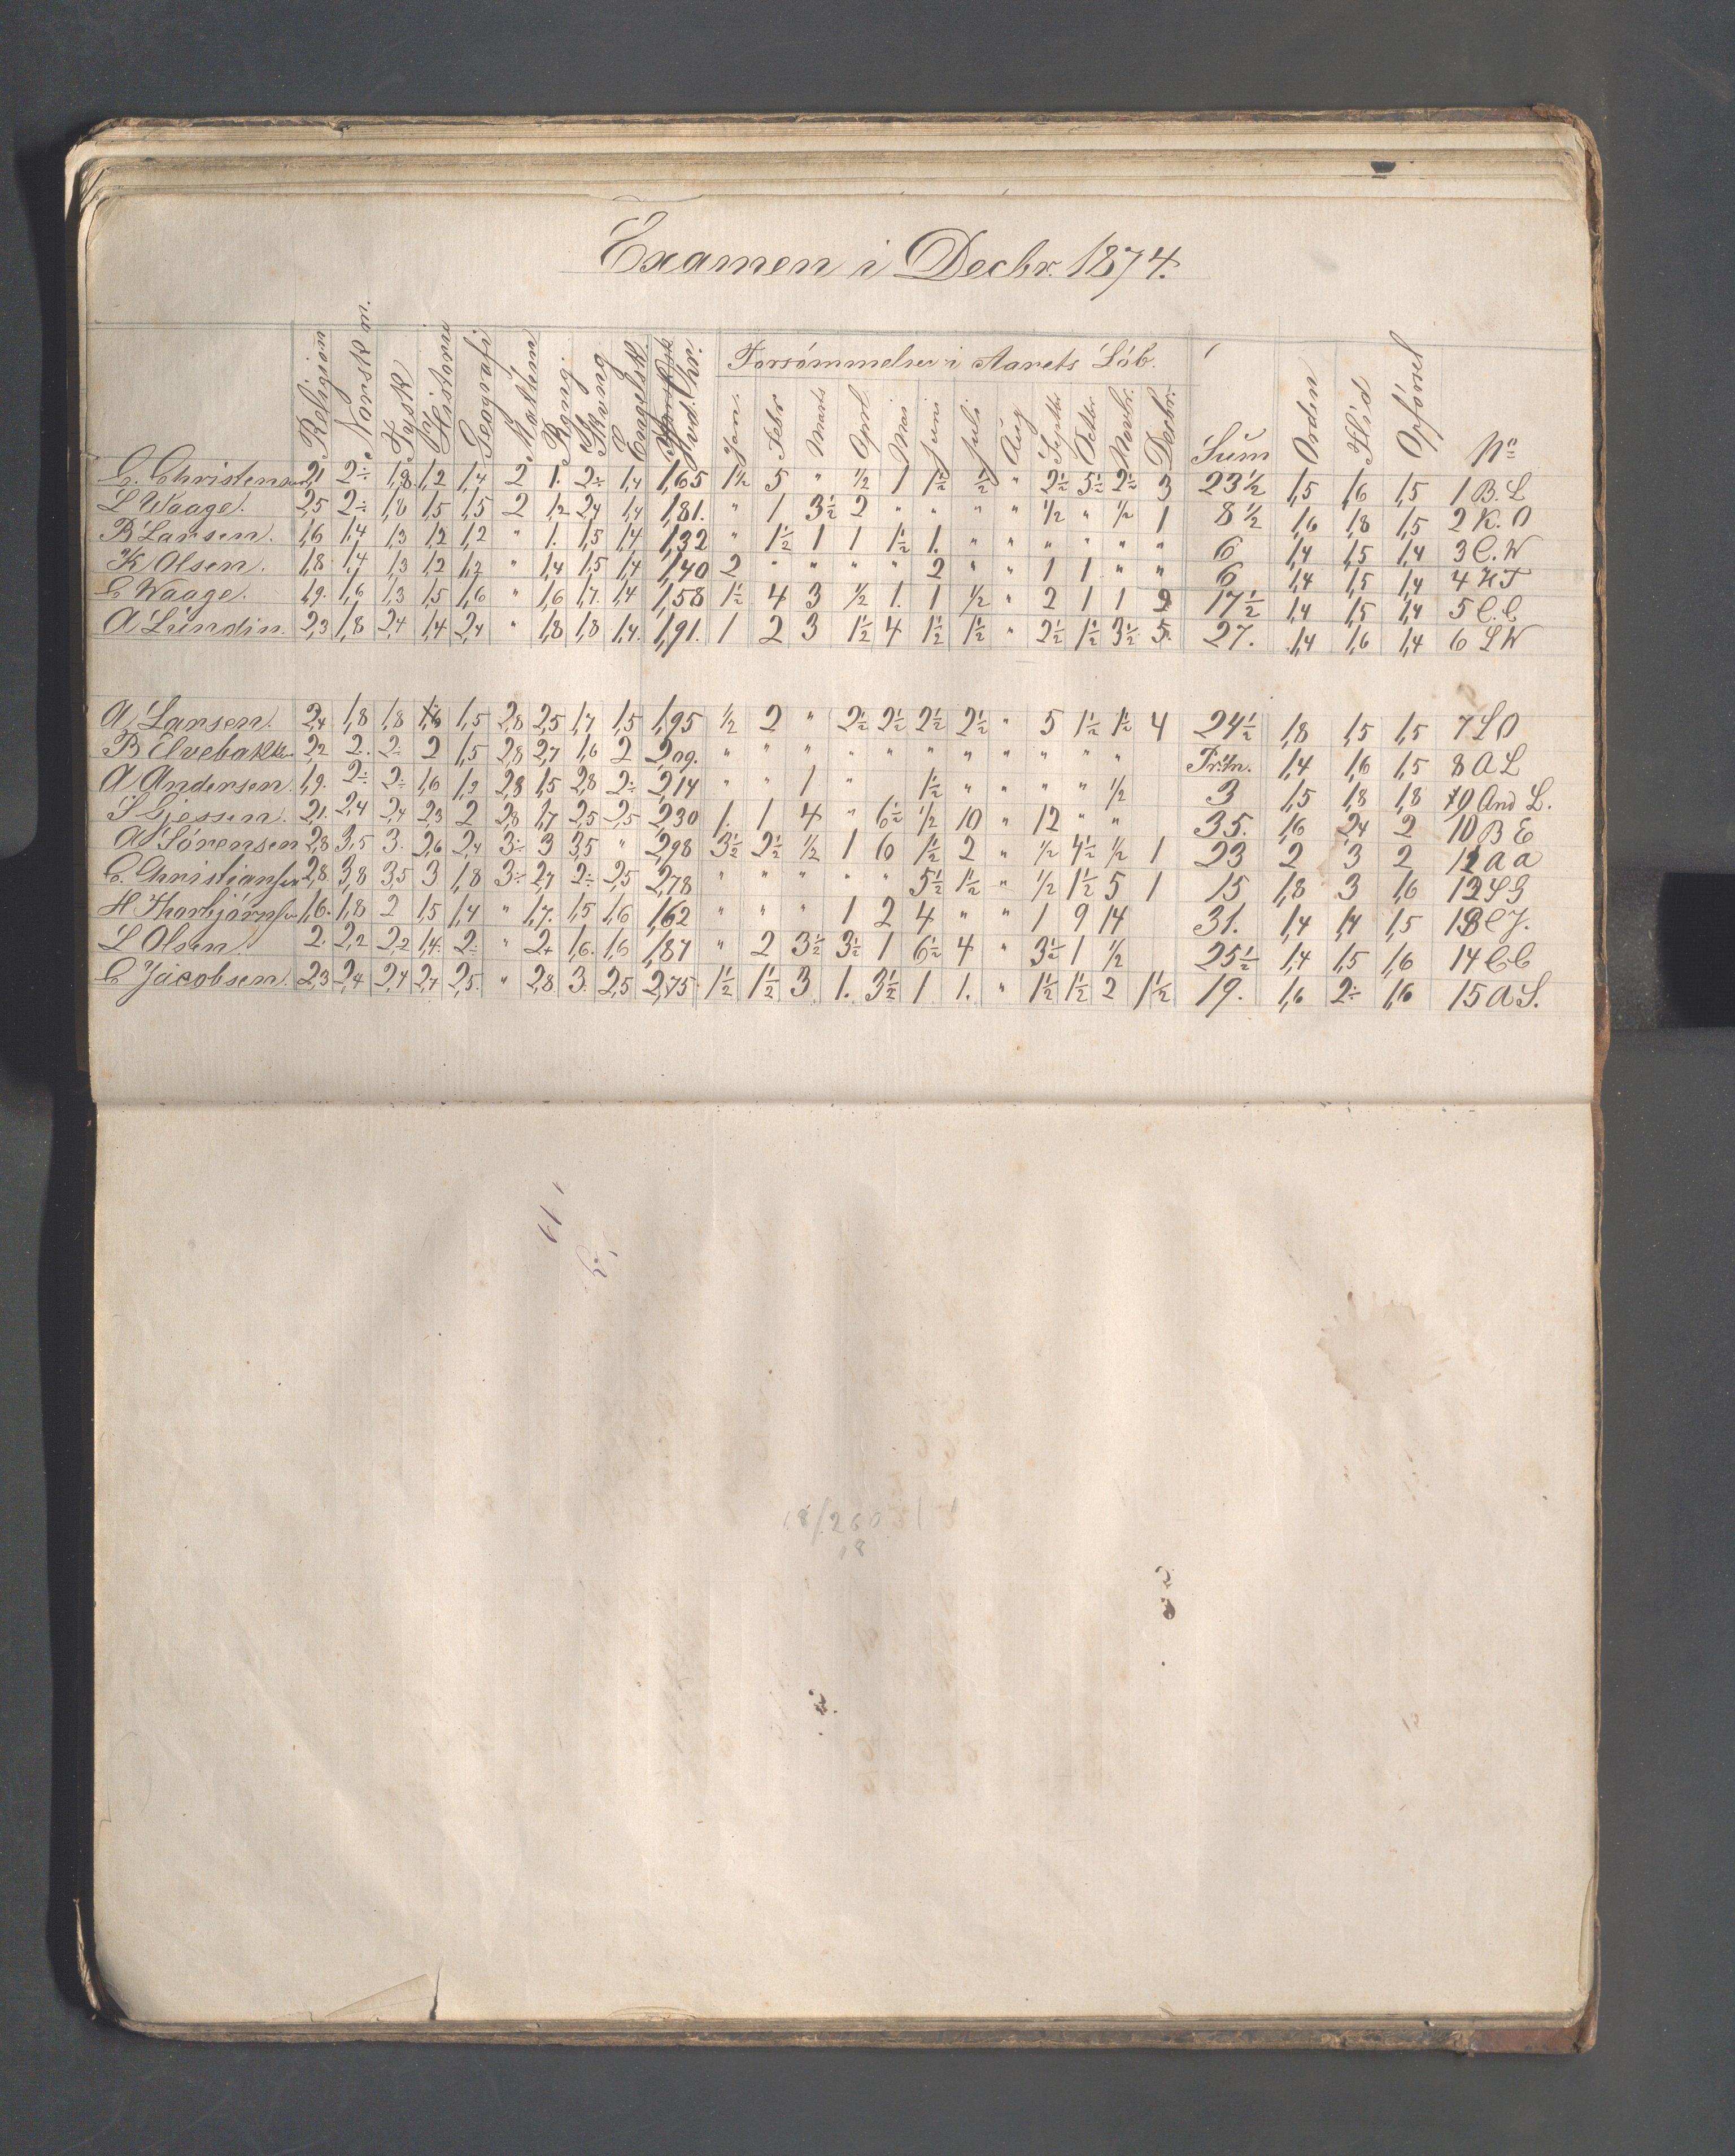 Examen i Decbr. 1874.
Religion Norsk m. Tysk Historie Geografi Mathem Rgnig Skrvng Engelsk Hvd. Chr. Forsømmelser i Aarets Løb.
Jan. Febr Marts April Mai Juni Juli Aug Septbr Octbr. Novbr. Decbr. Sum Orden Flid Opførsel No
C. Christensen 2,1 2÷ 1,8 1,2 1,4 2 1. 2÷ 1,4 1,65 1½ 5 " ½ 1 1½ ½ " 2½ 5½ 2½ 3 23½ 1,5 1,6 1,5 1 B. L
L Waage. 2,5 2÷ 1,8 1,5 1,5 2 1,2 2,4 1,4 1,81. " 1 3½ 2 " " " " ½ " ½ 1 8½ 1,6 1,8 1,5 2 K. O
B Larsen. 1,6 1,4 1,3 1,2 1,2 " 1. 1,5 1,4 1,32 " 1½ 1 1 1½ 1. " " " " " " 6 1,4 1,5 1,4 3 C. W
K Olsen. 1,8 1,4 1,3 1,2 1,2 " 1,4 1,5 1,4 1,40 2 " " " " 2 " " 1 1 " " 6 1,4 1,5 1,4 4 H T
C Waage. 1,9. 1,6 1,3 1,5 1,6 " 1,6 1,7. 1,4 1,58 1½ 4 3 ½ 1. 1 ½ " 2 1 1 2 17½ 1,4 1,5 1,4 5 C. C
A Lundin. 2,3 1,8 2,4 1,4 2,4 " 1,8 1,8 1,4. 1,91. 1 2 3 1½ 4 1½ 1½ " 2½ 1½ 3½ 5. 27. 1,4 1,6 1,4 6 L W
A Larsen. 2,4 1,8 1,8 1,6 1,5 2,8 2,5 1,7 1,5 1,95 ½ 2 " 2½ 2½ 2½ 2½ " 5 1½ 1½ 4 24½ 1,8 1,5 1,5 7 L O
B Elvebakk 2,2 2. 2÷ 2 1,5 2,8 2,7 1,6 2 2,09. " " " " " " " " " " " Fr:in. 1,4 1,6 1,5 8 A L
A Andersen. 1,9. 2÷ 2÷ 1,6 1,2 2,8 1,5 2,8 2÷ 2,14 " " 1 " 1½ " " " " ½ 3 1,5 1,8 1,8 9 And L.
S Gjessen. 2,1. 2,4 2,4 2,3 2 2,8 1,7 2,5 2,5 2,30 1. 1 4 " 6½ ½ 10 " 12 " " 35. 1,6 2,4 2 10 B E
A Sørensen 2,8 3,5 3. 2,6 2,4 3÷ 3 3,5 " 2,98 3½ 2½ ½ 1 6 1½ 2 " ½ 4½ ½ 1 23 2 3 2 11 A a
C. Christiansen 2,8 3,8 3,5 3 1,8 3÷ 2,7 2÷ 2,5 2,78 " " " " " 5½ 1½ " ½ 1½ 5 1 15 1,8 3 1,6 12 S G
H Thorbjørnsen 1,6. 1,8 2 1,5 1,4 " 1,7. 1,5 1,6 1,62 " " " 1 2 4 " " 1 9 14 31. 1,4 1,4 1,5 13 C J.
L Olsen. 2. 2,2 2,2 1,4. 2÷ " 2+ 1,6. 1,6 1,87 " 2 3½ 3½ 1 6½ 4 " 3½ 1 ½ 25½ 1,4 1,5 1,6 14 C C
C Jacobsen. 2,3 2,4 2,4 2,7 2,5. " 2,8 3. 2,5 2,75 1½ 1½ 3 1. 3½ 1 1. " 1½ 1½ 2 1½ 19. 1,6 2÷ 1,6 15 A S.
18/260
18